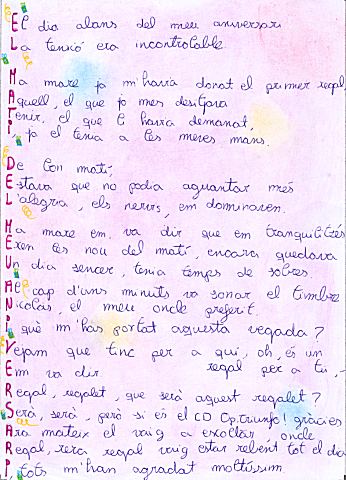 El dia abans del meu aniversari
La tensió era incontrolable.
Ma mare ja m'havia donat el primer regal,
Aquell, el que jo més desitjava
Tenir, el que li havia demanat,
I, ja el tenia a les meves mans.
De bon matí,
Estava que no podia aguantar més
L'alegria, els nervis, em dominaven.
Ma mare em va dir que em tranquilitzés
Eren les nou del matí, encara quedava
Un dia sencer, tenia temps de sobres.
Al cap d'uns minuts va sonar el timbre
Nicolas, el meu oncle preferit.
I què m'has portat aquesta vegada?
Vejam que tinc per a qui, oh, és un
Em va dir. regal per a tu,-
Regal, regalet, que serà aquest regalet?
Serà, serà, però si és el CD Op.triunfo! gràcies
Ara mateix el vaig a escoltar, oncle
Regal, rera regal vaig estar rebent tot el dia
I, tots m'han agradat moltíssim.